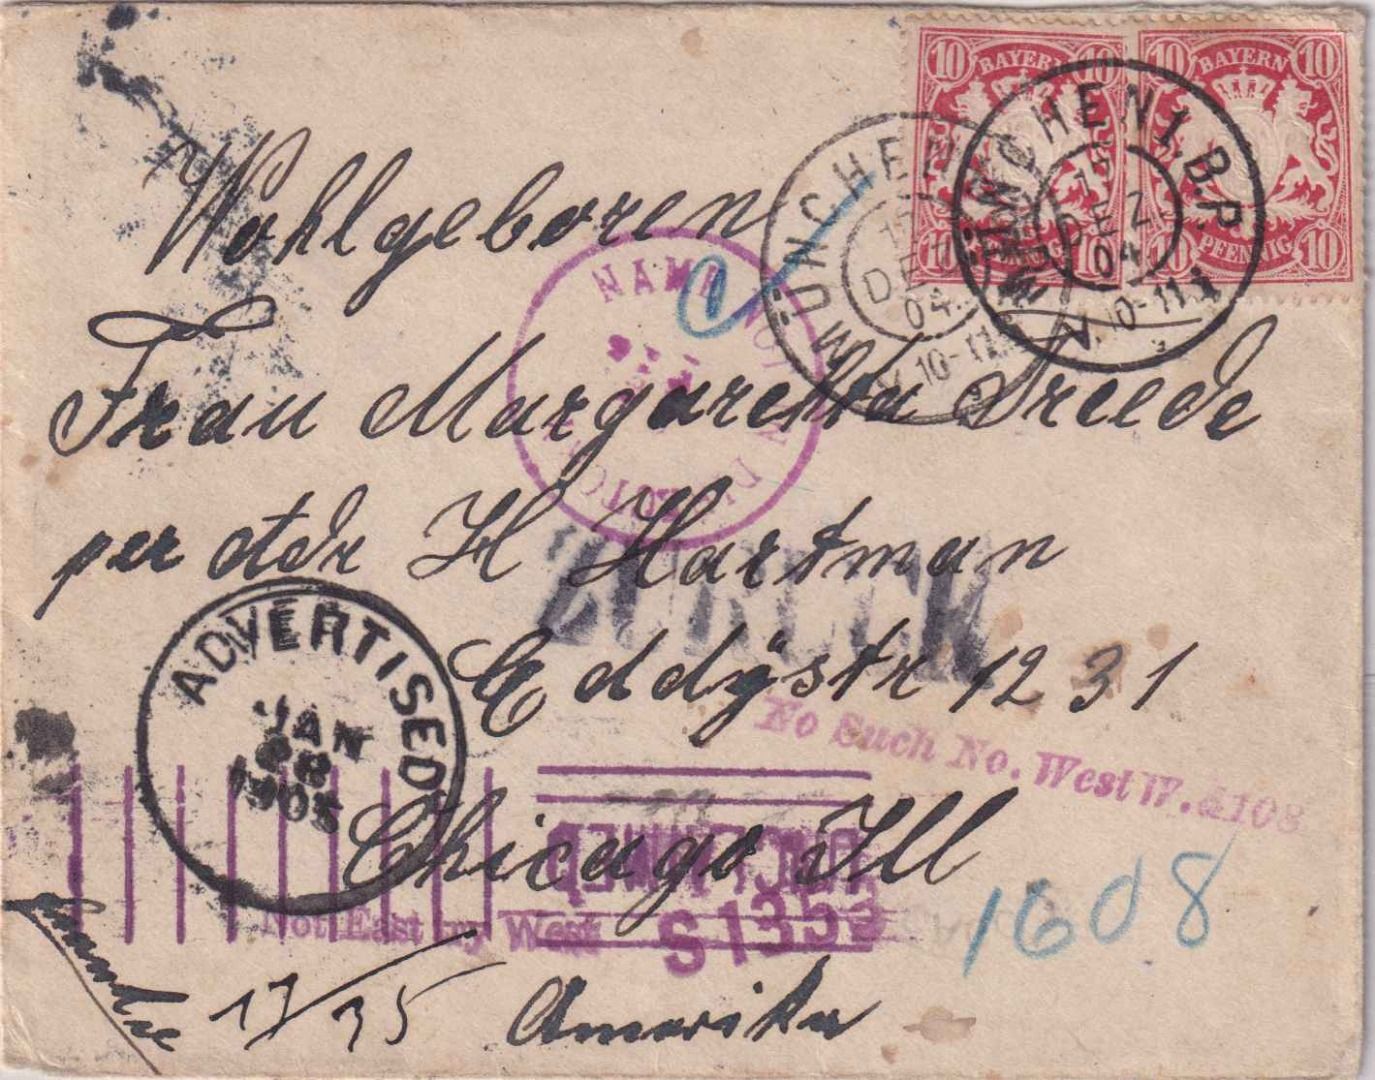 10 BAYERN 10
10 PFENNIG 10
10 BAYERN 10
10 PFENNIG 10
MÜNCHEN
DEZ
04
V. 10-11
MÜNCHEN I. B.P.
15
DEZ
04
V. 10-11
Wohlgeboren
NAME NOT IN DIRECTORY
Frau Margaretha
per Adr H Hartman
ZURÜCK
Eddÿstr 1231
No Such No. West W. 5108
ADVERTISED
JAN
28
1905
Chicago Ill
UNCLAIMED
Not East try West
S 1353
1608
17/35 Amerika